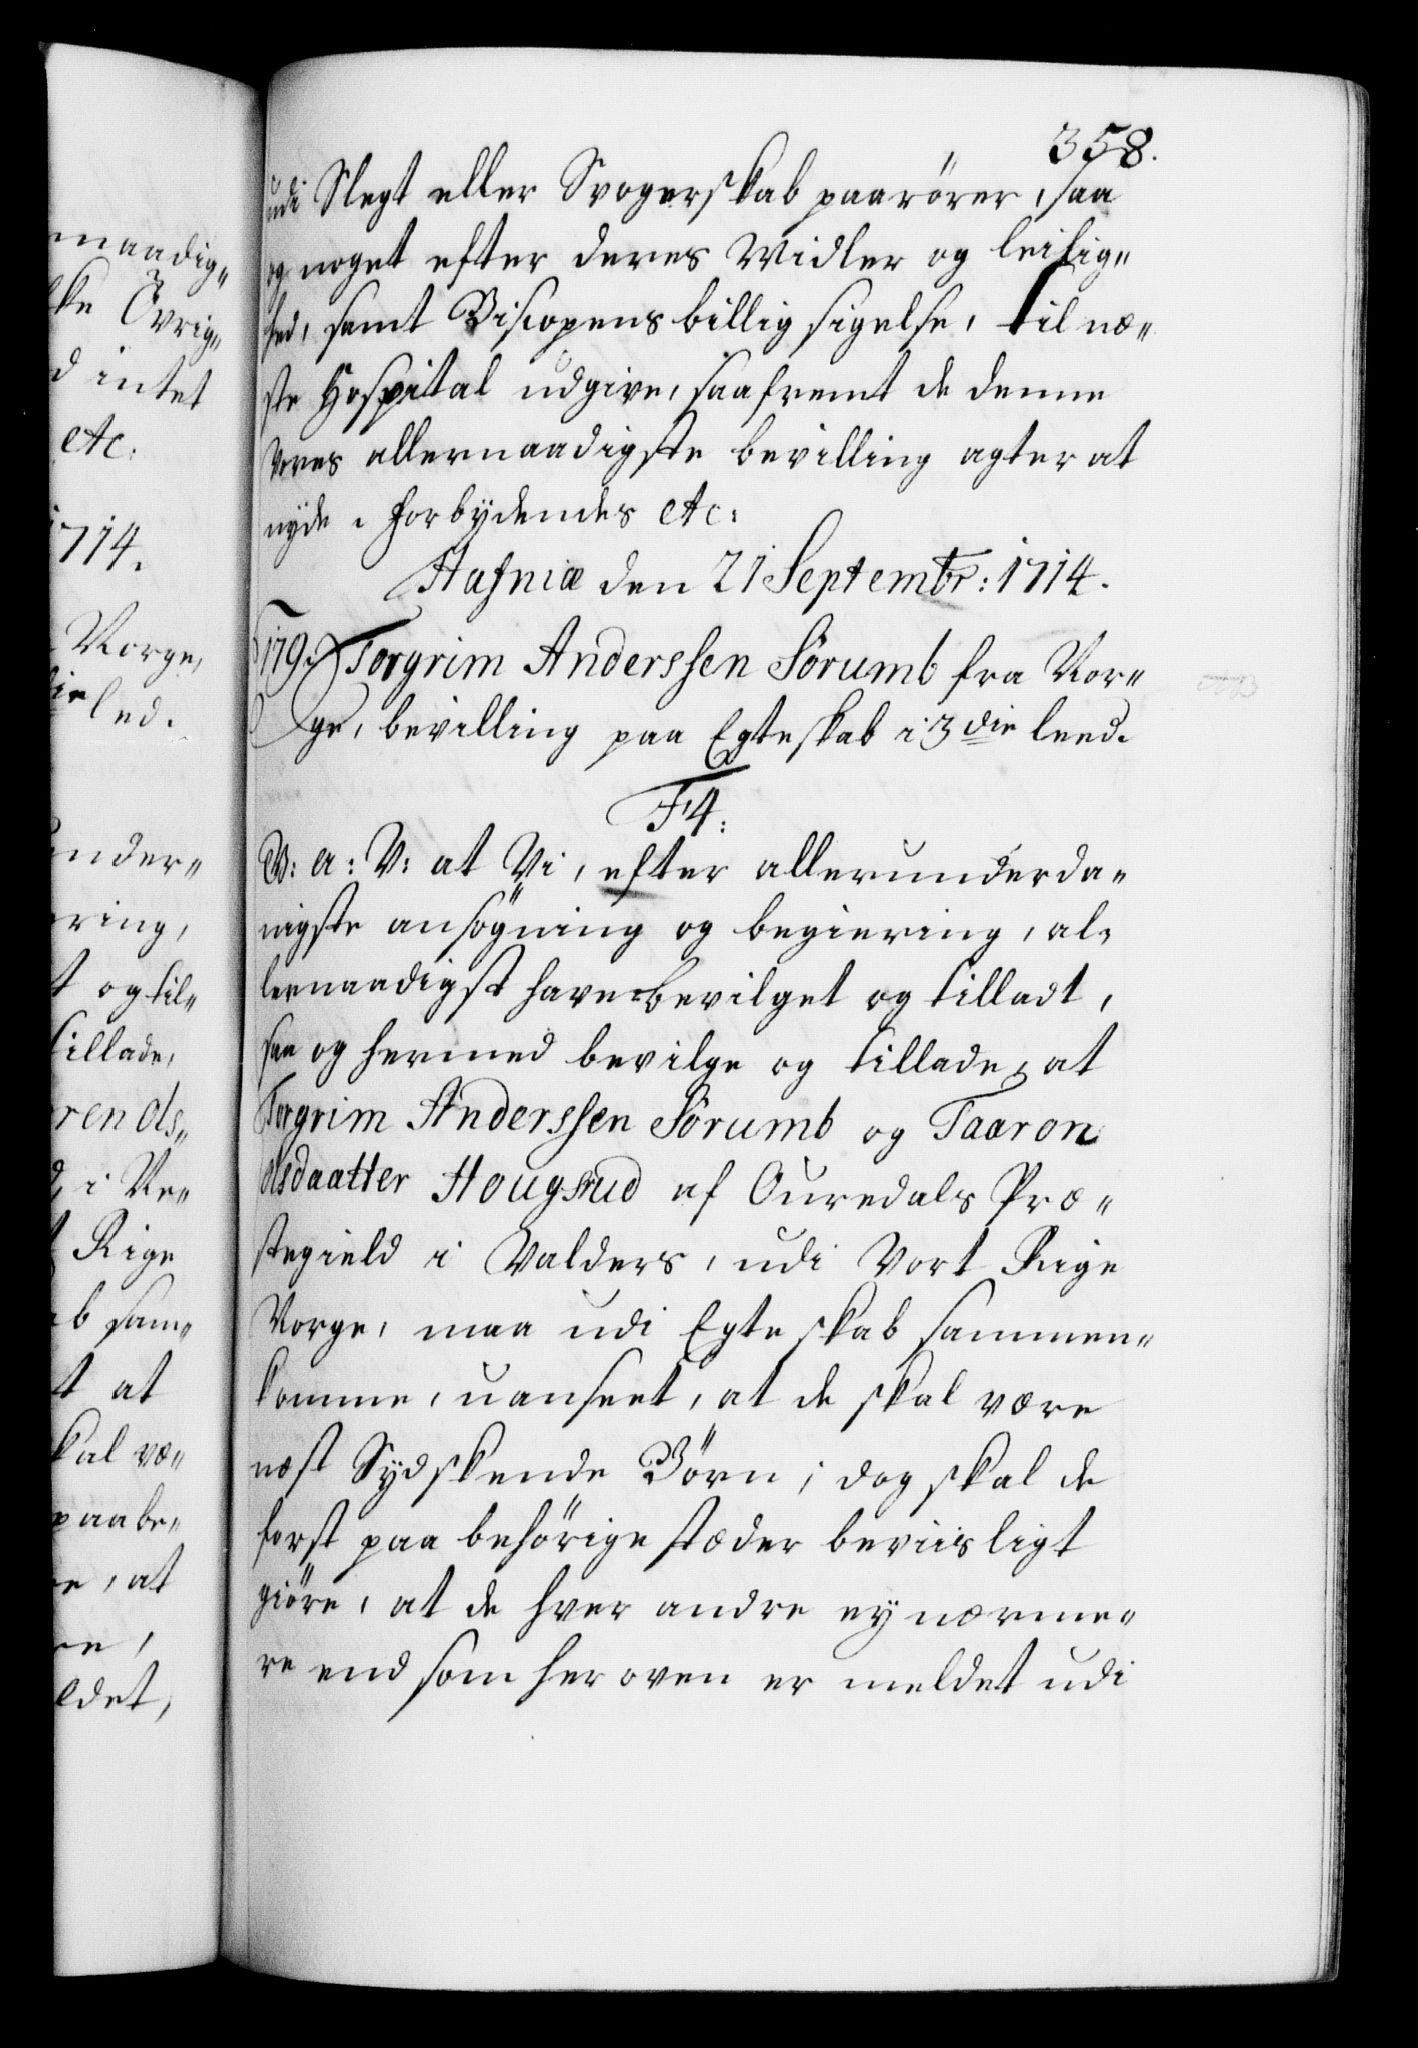 358.
udi Slegt eller Svogerskab paarörer, saa
og noget efter deres Midler og leilig„
hed, samt Biscopens billig sigelse, til næ„
ste Hospital udgive, saafremt de denne
Vores allernaadigste bevilling agter at
nyde. Forbydendes etc:
Hafniæ den 21 Septembr: 1714.
179. Torgrim Anderssen Sörumb fra Nor„
ge, bevilling paa Egteskab i 3die leed.
F4:
G: a: V: at Vi, efter allerunderda„
nigste ansögning og begiering, al„
lernaadigst have bevilget og tilladt,
saa og hermed bevilge og tillade, at
Torgrim Anderssen Sörumb og Taaron
Olsdaatter Hougsrud af Ouredals Præ„
stegield i Valders, udi Vort Rige
Norge, maa udi Egteskab sammen„
komme, uanseet, at de skal være
næst Sydskende Börn; dog skal de
först paa behörige stæder beviisligt
giöre, at de hver andre ey nærme„
re end som her oven er meldet udi
maadig„
ke Övrig„
d intet
etc:
1714.
Norge,
die led.
under„
ering,
t og til„
tillade,
rends„
d, i Ne„
t Rige
ab sam„
t at
kal væ„
paabe„
re, at
re,
ldet,